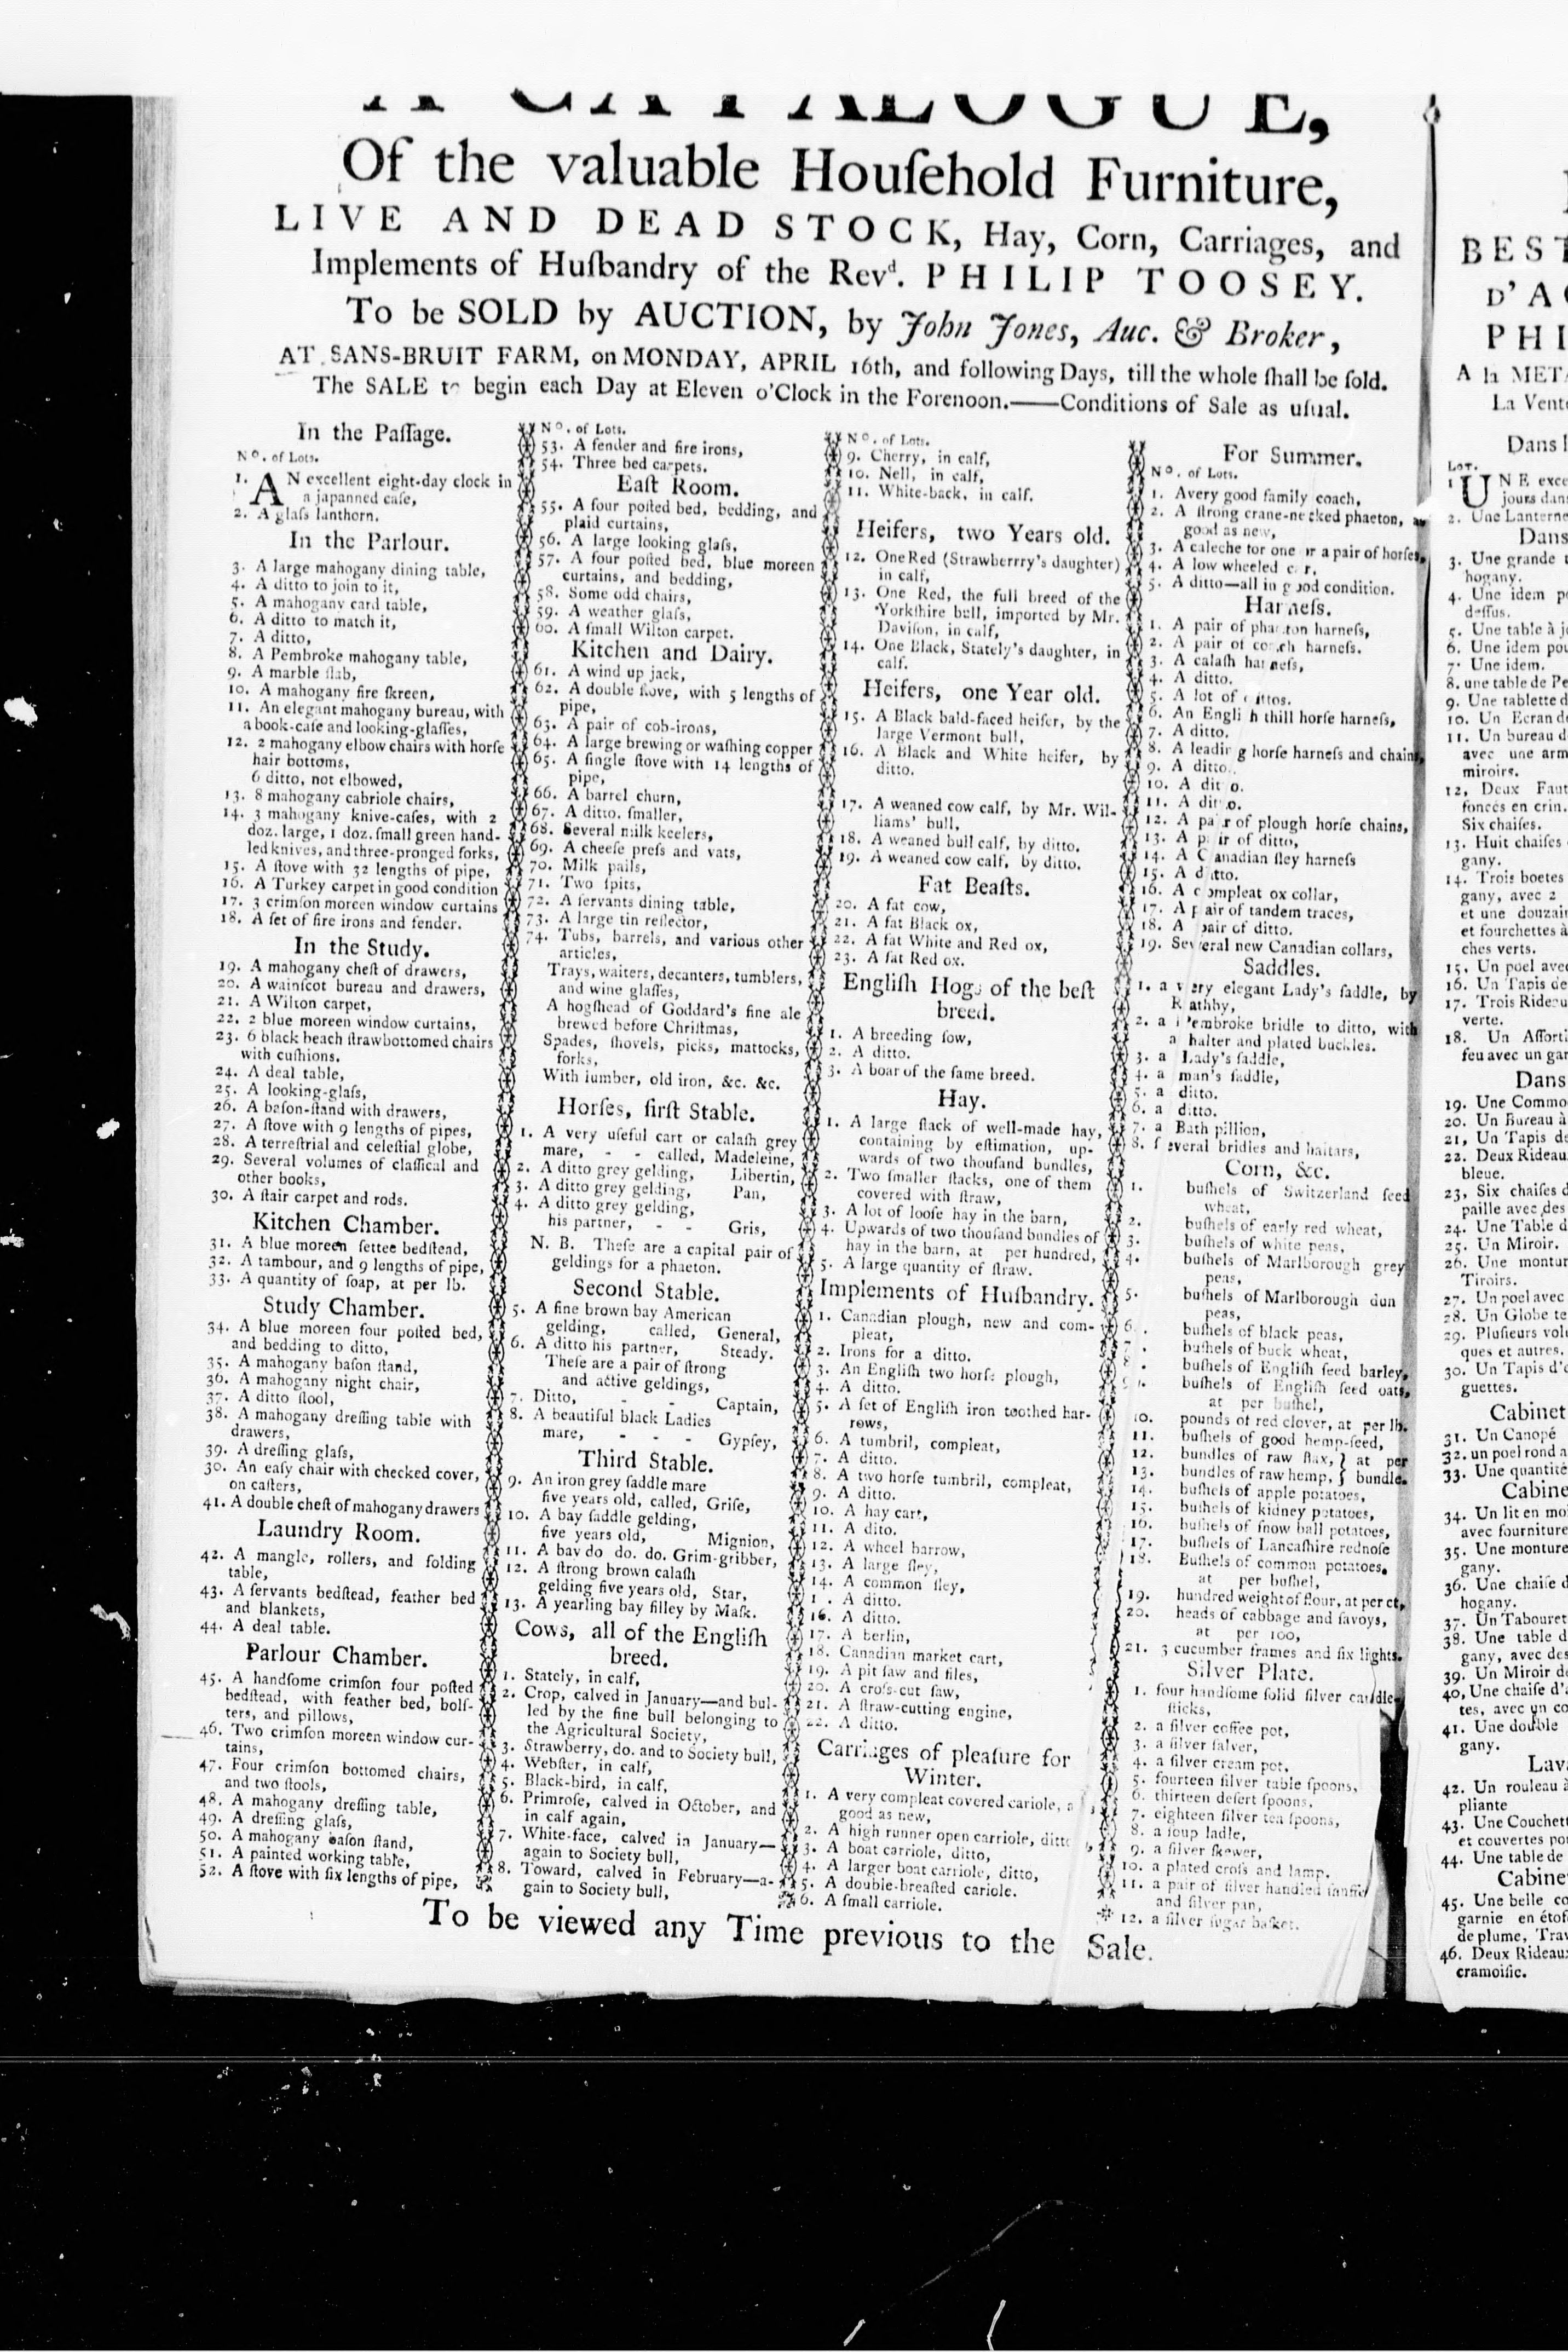 A CATALOGUE,
Of the valuable Houſehold Furniture,
LIVE AND DEAD STOCK, Hay, Corn, Carriages, and
Implements of Huſbandry of the Revd. PHILIP TOOSEY.
To be SOLD by AUCTION, by John Jones, Auc. & Broker,
AT SANS-BRUIT FARM, on MONDAY, APRIL 16th, and following Days, till the whole ſhall be ſold.
The SALE to begin each Day at Eleven o'Clock in the Forenoon.——Conditions of Sale as uſual.
In the Paſſage.
No. of Lots.
1. AN excellent eight-day clock in
a japanned caſe,
2. A glaſs lanthorn.
In the Parlour.
3. A large mahogany dining table,
4. A ditto to join to it,
5. A mahogany card table,
6. A ditto to match it,
7. A ditto,
8. A Pembroke mahogany table,
9. A marble ſlab,
10. A mahogany fire ſkreen,
11. An elegant mahogany bureau, with
a book-caſe and looking-glaſſes,
12. 2 mahogany elbow chairs with horſe
hair bottoms,
6 ditto, not elbowed,
13. 8 mahogany cabriole chairs,
14. 3 mahogany knive-caſes, with 2
doz. large, 1 doz. ſmall green hand-
led knives, and three-pronged forks,
15. A ſtove with 32 lengths of pipe,
16. A Turkey carpet in good condition
17. 3 crimſon moreen window curtains
18. A ſet of fire irons and fender.
In the Study.
19. A mahogany cheſt of drawers,
20. A wainſcot bureau and drawers,
21. A Wilton carpet,
22. 2 blue moreen window curtains,
23. 6 black beach ſtrawbottomed chairs
with cuſhions.
24. A deal table,
25. A looking-glaſs,
26. A baſon-ſtand with drawers,
27. A ſtove with 9 lengths of pipes,
28. A terreſtrial and celeſtial globe,
29. Several volumes of claſſical and
other books,
30. A ſtair carpet and rods.
Kitchen Chamber.
31. A blue moreen ſettee bedſtead,
32. A tambour, and 9 lengths of pipe,
33. A quantity of ſoap, at per lb.
Study Chamber.
34. A blue moreen four poſted bed,
and bedding to ditto,
35. A mahogany baſon ſtand,
36. A mahogany night chair,
37. A ditto ſtool,
38. A mahogany dreſſing table with
drawers,
39. A dreſſing glaſs,
30. An eaſy chair with checked cover,
on caſters,
41. A double cheſt of mahogany drawers
Laundry Room.
42. A mangle, rollers, and folding
table,
43. A ſervants bedſtead, feather bed
and blankets,
44. A deal table.
Parlour Chamber.
45. A handſome crimſon four poſted
bedſtead, with feather bed, bolſ-
ters, and pillows,
46. Two crimſon moreen window cur-
tains,
47. Four crimſon bottomed chairs,
and two ſtools,
48. A mahogany dreſſing table,
49. A dreſſing glaſs,
50. A mahogany baſon ſtand,
51. A painted working table,
52. A ſtove with ſix lengths of pipe,
No. of Lots.
53. A fender and fire irons,
54. Three bed carpets.
Eaſt Room.
55. A four poſted bed, bedding, and
plaid curtains,
56. A large looking glaſs,
57. A four poſted bed, blue moreen
curtains, and bedding,
58. Some odd chairs,
59. A weather glaſs,
60. A ſmall Wilton carpet.
Kitchen and Dairy.
61. A wind up jack,
62. A double ſtove, with 5 lengths of
pipe,
63. A pair of cob-irons,
64. A large brewing or waſhing copper
65. A ſingle ſtove with 14 lengths of
pipe,
66. A barrel churn,
67. A ditto. ſmaller,
68. Several milk keelers,
69. A cheeſe preſs and vats,
70. Milk pails,
71. Two ſpits,
72. A ſervants dining table,
73. A large tin reflector,
74. Tubs, barrels, and various other
articles,
Trays, waiters, decanters, tumblers,
and wine glaſſes,
A hogſhead of Goddard's fine ale
brewed before Chriſtmas,
Spades, ſhovels, picks, mattocks,
forks,
With lumber, old iron, &c. &c.
Horſes, firſt Stable.
1. A very uſeful cart or calaſh grey
mare, - - called, Madeleine,
2. A ditto grey gelding, Libertin,
3. A ditto grey gelding, Pan,
4. A ditto grey gelding,
his partner, - - Gris,
N. B. Theſe are a capital pair of
geldings for a phaeton.
Second Stable.
5. A fine brown bay American
gelding, called, General,
6. A ditto his partner, Steady.
Theſe are a pair of ſtrong
and active geldings,
7. Ditto, - - Captain,
8. A beautiful black Ladies
mare, - - - Gypſey,
Third Stable.
9. An iron grey ſaddle mare
five years old, called, Griſe,
10. A bay ſaddle gelding,
five years old, Mignion,
11. A bay do do. do. Grim-gribber,
12. A ſtrong brown calaſh
gelding five years old, Star,
13. A yearling bay filley by Maſk.
Cows, all of the Engliſh
breed.
1. Stately, in calf,
2. Crop, calved in January—and bul-
led by the fine bull belonging to
the Agricultural Society,
3. Strawberry, do. and to Society bull,
4. Webſter, in calf,
5. Black-bird, in calf,
6. Primroſe, calved in October, and
in calf again,
7. White-face, calved in January—
again to Society bull,
8. Toward, calved in February—a-
gain to Society bull,
No. of Lots.
9. Cherry, in calf,
10. Nell, in calf,
11. White-back, in calf.
Heifers, two Years old.
12. One Red (Strawberrry's daughter)
in calf,
13. One Red, the full breed of the
Yorkſhire bull, imported by Mr.
Daviſon, in calf,
14. One Black, Stately's daughter, in
calf.
Heifers, one Year old.
15. A Black bald-faced heifer, by the
large Vermont bull,
16. A Black and White heifer, by
ditto.
17. A weaned cow calf, by Mr. Wil-
liams' bull,
18. A weaned bull calf, by ditto.
19. A weaned cow calf, by ditto.
Fat Beaſts.
20. A fat cow,
21. A fat Black ox,
22. A fat White and Red ox,
23. A fat Red ox.
Engliſh Hogs of the beſt
breed.
1. A breeding ſow,
2. A ditto.
3. A boar of the ſame breed.
Hay.
1. A large ſtack of well-made hay,
containing by eſtimation, up-
wards of two thouſand bundles,
2. Two ſmaller ſtacks, one of them
covered with ſtraw,
3. A lot of looſe hay in the barn,
4. Upwards of two thouſand bundles of
hay in the barn, at per hundred,
5. A large quantity of ſtraw.
Implements of Huſbandry.
1. Canadian plough, new and com-
pleat,
2. Irons for a ditto.
3. An Engliſh two horſe plough,
4. A ditto.
5. A ſet of Engliſh iron toothed har-
rows,
6. A tumbril, compleat,
7. A ditto.
8. A two horſe tumbril, compleat,
9. A ditto.
10. A hay cart,
11. A dito.
12. A wheel barrow,
13. A large ſley,
14. A common ſley,
1 . A ditto.
16. A ditto.
17. A berlin,
18. Canadian market cart,
19. A pit ſaw and files,
20. A croſs-cut ſaw,
21. A ſtraw-cutting engine,
22. A ditto.
Carriages of pleaſure for
Winter.
1. A very compleat covered cariole, a
good as new,
2. A high runner open carriole, ditto
3. A boat carriole, ditto,
4. A larger boat carriole, ditto,
5. A double-breaſted cariole.
6. A ſmall carriole.
For Summer.
No. of Lots.
1. Avery good family coach,
2. A ſtrong crane-necked phaeton, as
good as new,
3. A caleche for one or a pair of horſes,
4. A low wheeled c r,
5. A ditto—all in good condition.
Harneſs.
1. A pair of phaeton harneſs,
2. A pair of coach harneſs.
3. A calaſh harneſs,
4. A ditto.
5. A lot of dittos.
6. An Engliſh thill horſe harneſs,
7. A ditto.
8. A leading horſe harneſs and chains,
9. A ditto.
10. A ditto.
11. A ditto.
12. A pair of plough horſe chains,
13. A pair of ditto,
14. A Canadian ſley harneſs
15. A ditto.
16. A compleat ox collar,
17. A pair of tandem traces,
18. A pair of ditto.
19. Several new Canadian collars,
Saddles.
1. a very elegant Lady's ſaddle, by
Rathby,
2. a Pembroke bridle to ditto, with
a halter and plated buckles.
3. a Lady's ſaddle,
4. a man's ſaddle,
5. a ditto.
6. a ditto.
7. a Bath pillion,
8. ſeveral bridles and haltars,
Corn, &c.
1. buſhels of Switzerland ſeed
wheat,
2. buſhels of early red wheat,
3. buſhels of white peas,
4. buſhels of Marlborough grey
peas,
5. buſhels of Marlborough dun
peas,
6. buſhels of black peas,
7. buſhels of buck wheat,
8. buſhels of Engliſh ſeed barley,
9. buſhels of Engliſh ſeed oats,
at per buſhel,
10. pounds of red clover, at per lb.
11. buſhels of good hemp-ſeed,
12. bundles of raw flax, } at per
13. bundles of raw hemp, } bundle.
14. buſhels of apple potatoes,
15. buſhels of kidney potatoes,
16. buſhels of ſnow ball potatoes,
17. buſhels of Lancaſhire rednoſe
18. Buſhels of common potatoes,
at per buſhel,
19. hundred weight of flour, at per ct.
20. heads of cabbage and ſavoys,
at per 100,
21. 3 cucumber frames and ſix lights.
Silver Plate.
1. four handſome ſolid ſilver candle-
ſticks,
2. a ſilver coffee pot,
3. a ſilver ſalver,
4. a ſilver cream pot,
5. fourteen ſilver table ſpoons,
6. thirteen deſert ſpoons,
7. eighteen ſilver tea ſpoons,
8. a ſoup ladle,
9. a ſilver ſkewer,
10. a plated croſs and lamp.
11. a pair of ſilver handled
and ſilver pan,
12. a ſilver ſugar baſket.
To be viewed any Time previous to the Sale.
BEST
D'A
PHI
A la META
La Vente
Dans l
LOT.
1 UNE exce
jours dans
2. Une Lanterne
Dans
3. Une grande t
hogany.
4. Une idem po
deſſus.
5. Une table à j
6. Une idem pou
7. Une idem.
8. une table de Pe
9. Une tablette d
10. Un Ecran de
11. Un bureau d
avec une arm
miroirs.
12, Deux Faut
foncés en crin.
Six chaiſes.
13. Huit chaiſes
gany.
14. Trois boetes
gany, avec 2
et une douzain
et fourchettes à
ches verts.
15. Un poel avec
16. Un Tapis de
17. Trois Rideau
verte.
18. Un Aſſorti
feu avec un gar
Dans
19. Une Commo
20. Un Bureau à
21, Un Tapis de
22. Deux Rideau
bleue.
23, Six chaiſes d
paille avec des
24. Une Table d
25. Un Miroir.
26. Une montur
Tiroirs.
27. Un poel avec
28. Un Globe te
29. Pluſieurs vol
ques et autres.
30. Un Tapis d'e
guettes.
Cabinet
31. Un Canopé
32. un poel rond a
33. Une quantité
Cabine
34. Un lit en mo
avec fourniture
35. Une monture
gany.
36. Une chaiſe d
hogany.
37. Un Tabouret
38. Une table d
gany, avec des
39. Un Miroir de
40, Une chaiſe d'a
tes, avec un co
41. Une double
gany.
Lava
42. Un rouleau à
pliante
43. Une Couchett
et couvertes po
44. Une table de
Cabinet
45. Une belle co
garnie en étof
de plume, Trav
46. Deux Rideau
cramoiſic.